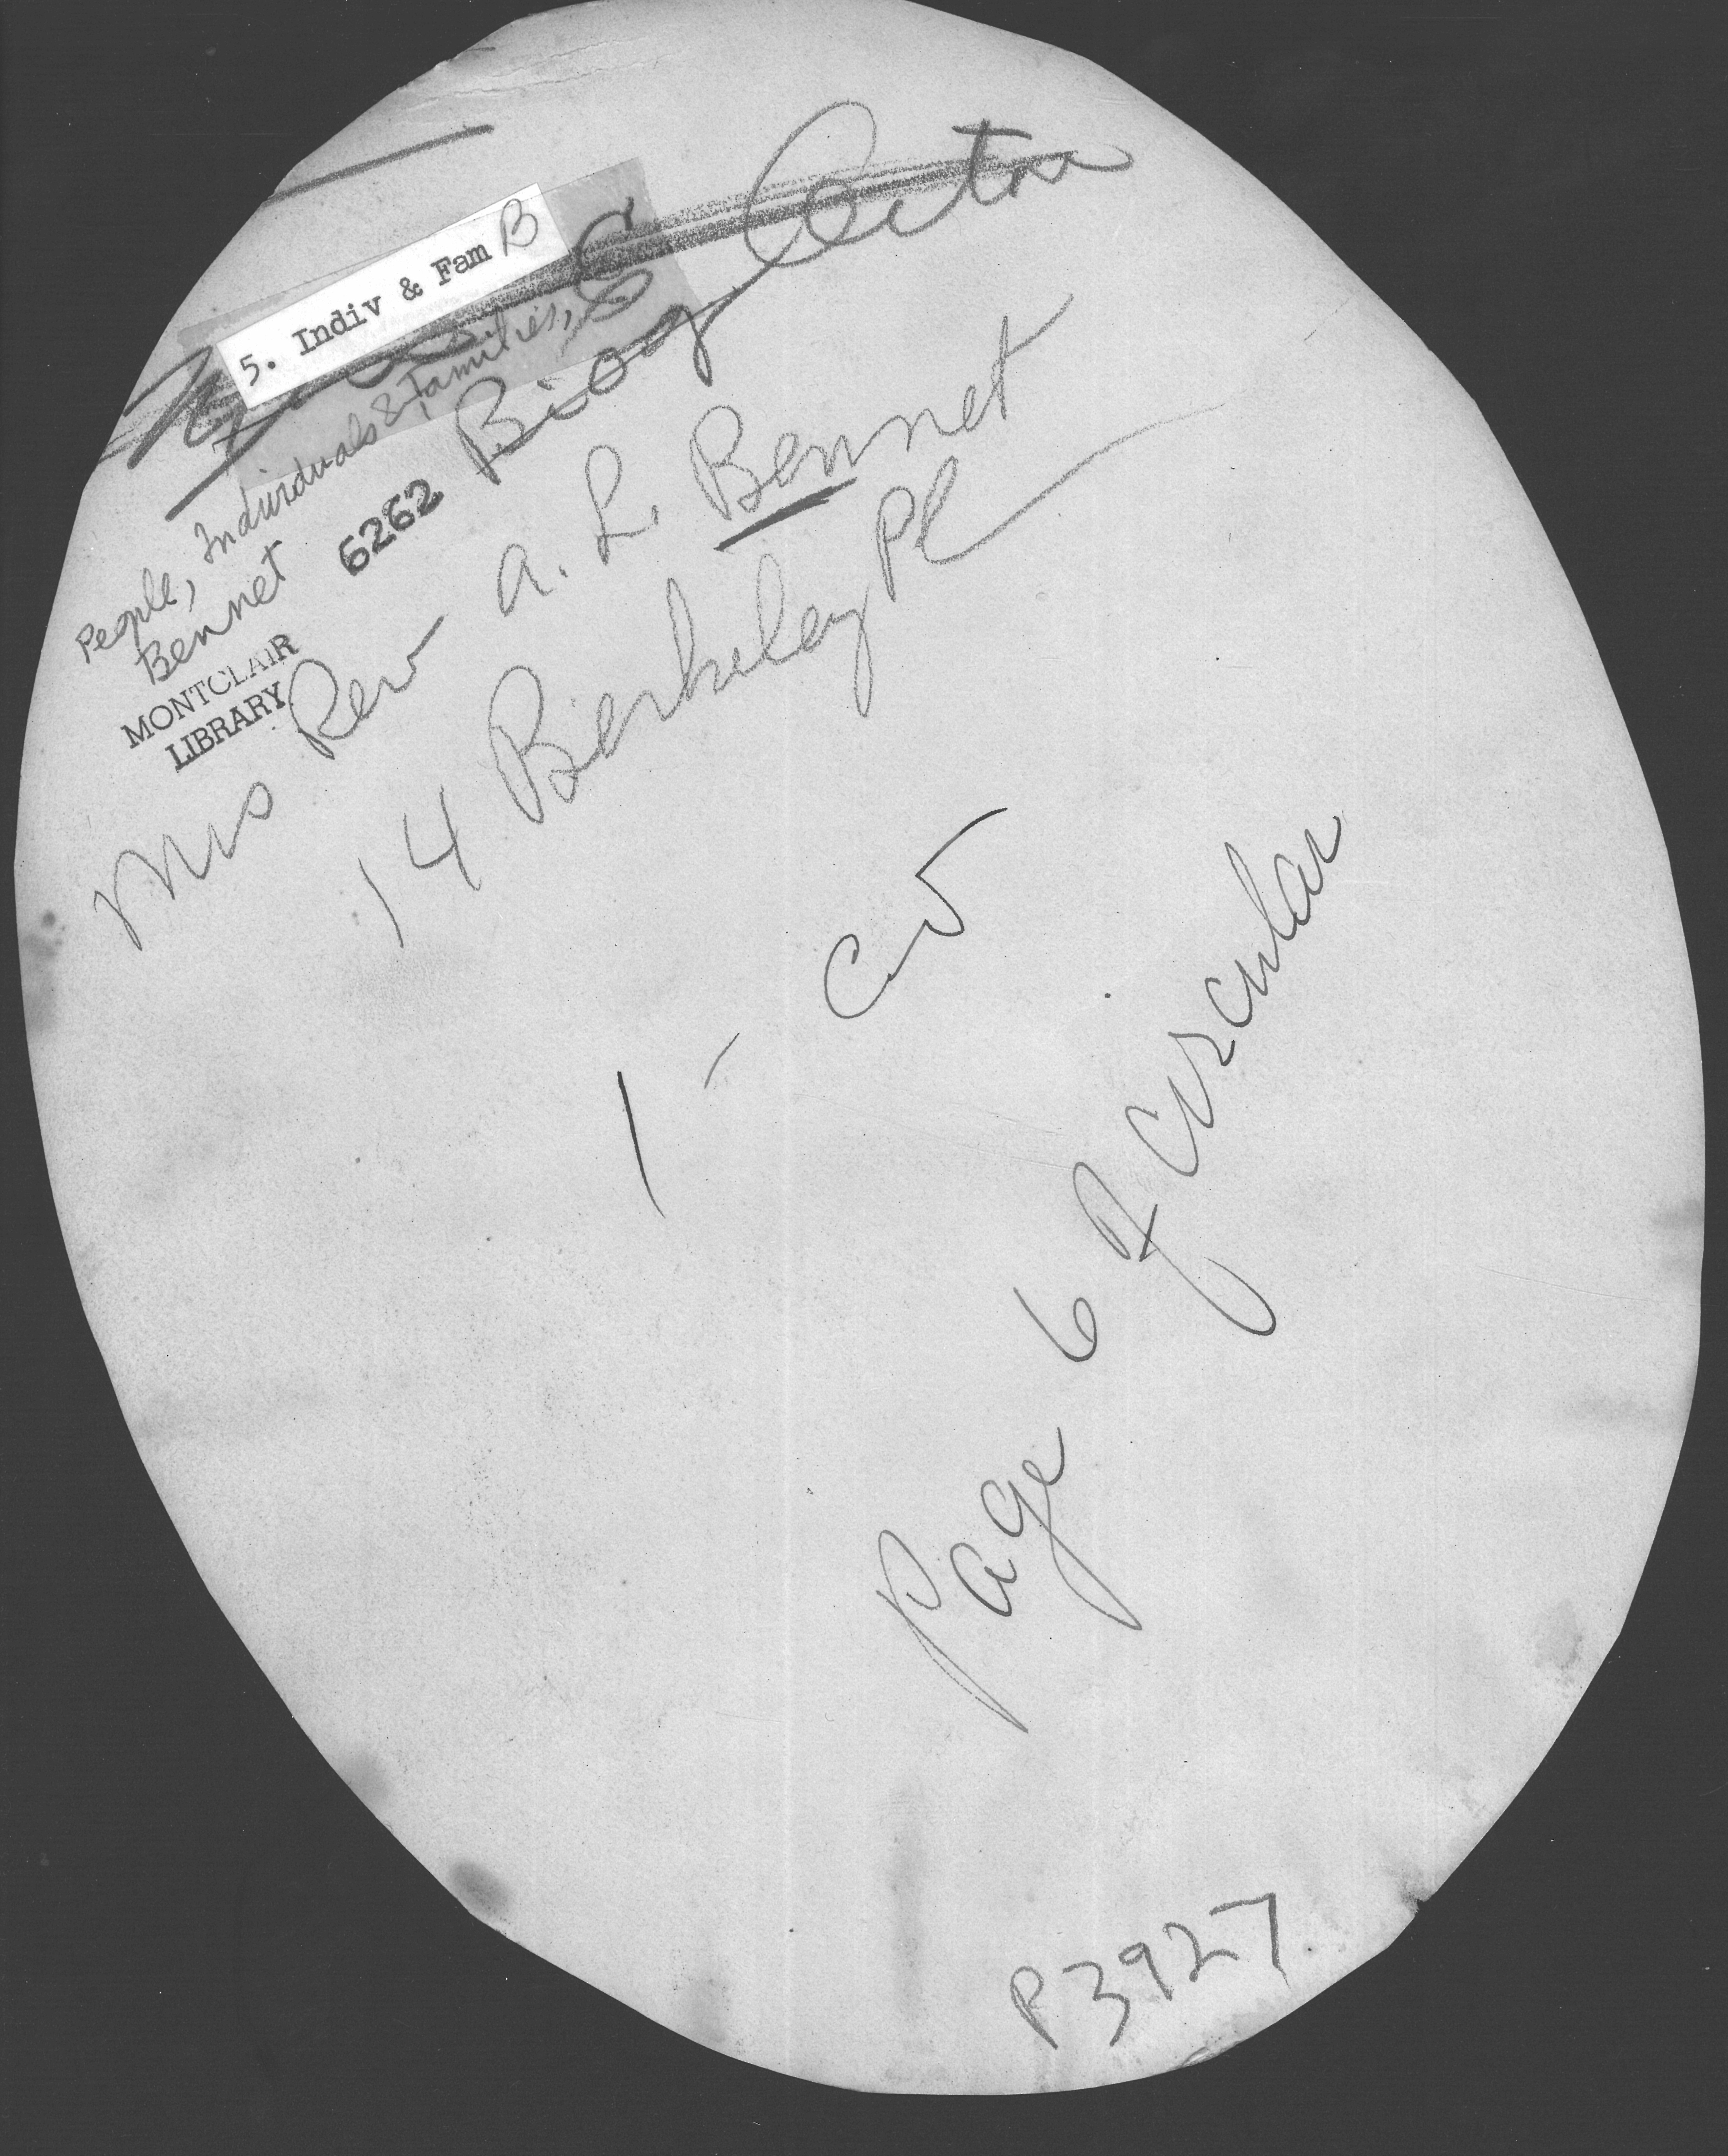 5. Indiv & Fam B
People, Individuals & Families, B
Bennet
6262 Biog
MONTCLAIR
LIBRARY
Mrs Rev A. L. Bennet
14 Berkeley Pl
1 -
Page 6 of circular
P3927